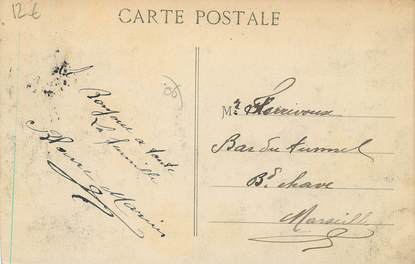 12 €
CARTE POSTALE
Bonjour a toute
La famille
Marius
Mr
Bar du tunnel
Bd chave
Marseille